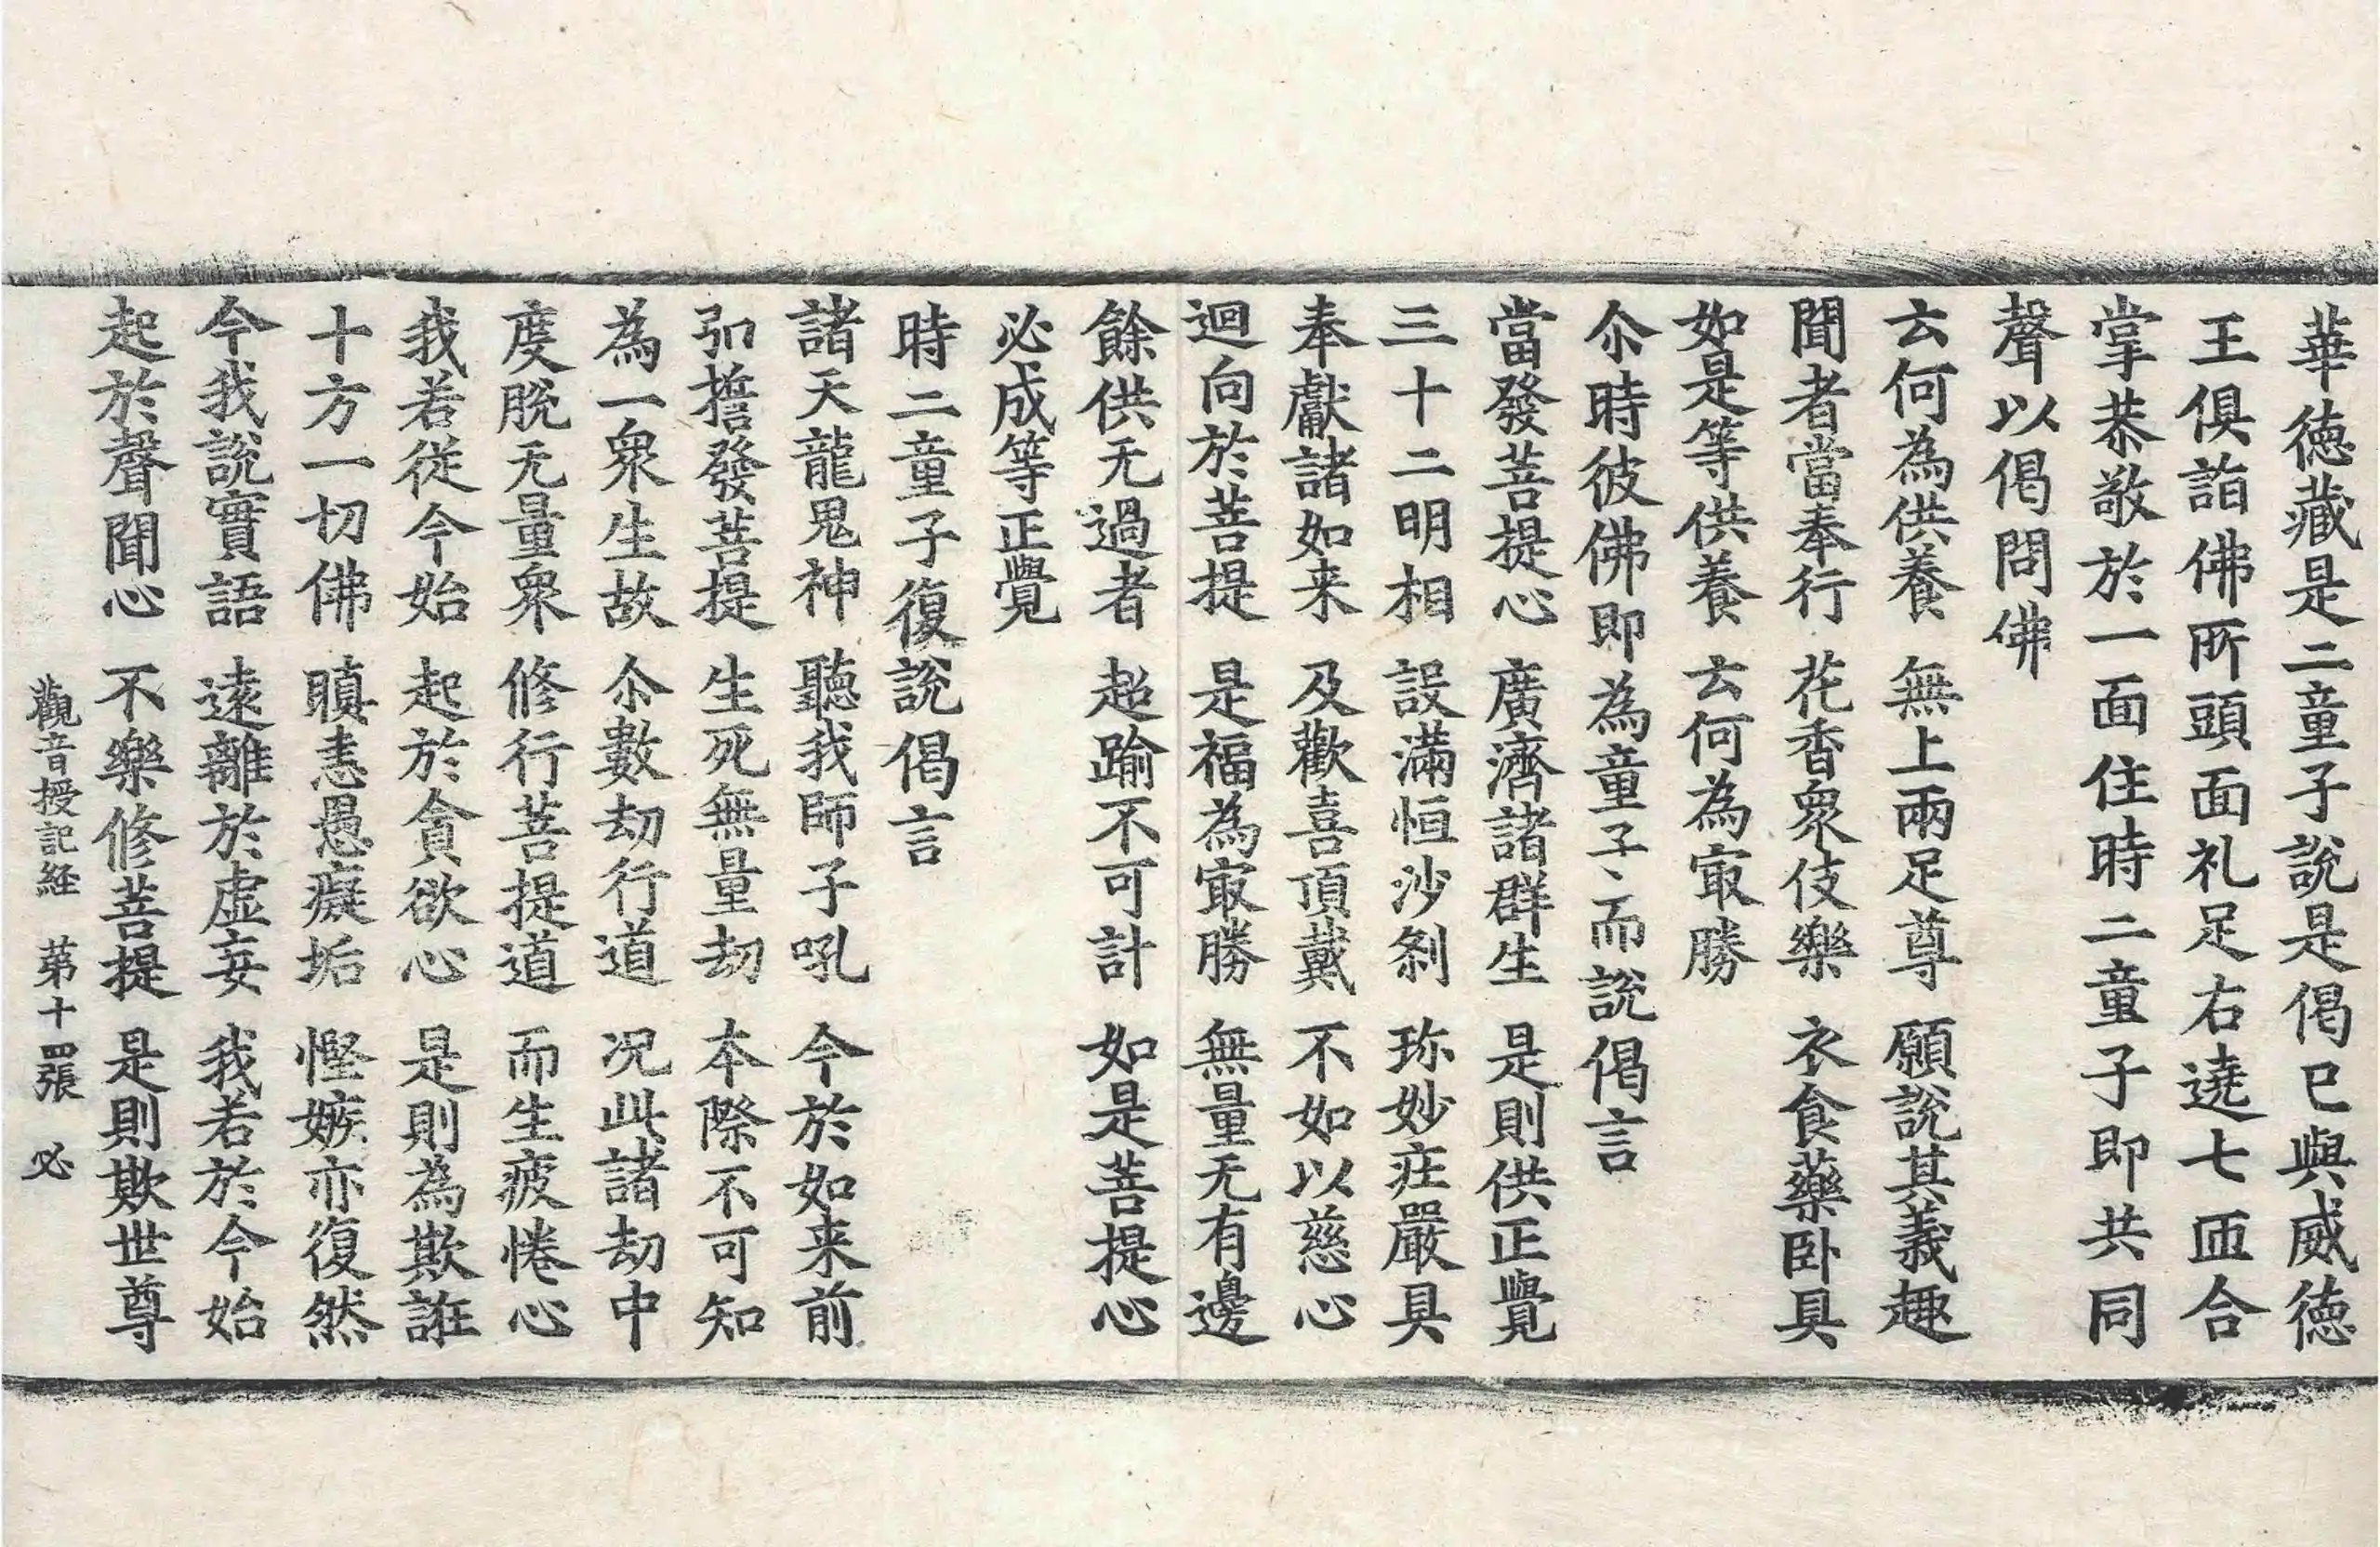 華徳藏是二童子說是偈已與威徳
王俱詣佛所頭面礼足右遶七匝合
掌恭敬於一面住時二童子即共同
聲以偈問佛
云何為供養　無上兩足尊　願說其義趣
聞者當奉行　花香衆伎樂　衣食藥卧具
如是等供養　云何為㝡勝
尒時彼佛即為童子、而說偈言
當發菩提心　廣濟諸群生　是則供正覺
三十二明相　設滿恒沙刹　珎妙庄嚴具
奉獻諸如来　及歡喜頂戴　不如以慈心
迴向於菩提　是福為㝡勝　無量无有邊
餘供无過者　超踰不可計　如是菩提心
必成等正覺
時二童子復說偈言
諸天龍鬼神　聽我師子吼　今於如来前
弘誓發菩提　生死無量劫　本際不可知
為一衆生故　尒數劫行道　况此諸劫中
度脫无量衆　修行菩提道　而生疲惓心
我若從今始　起於貪欲心　是則為欺誑
十方一切佛　瞋恚愚癡垢　慳嫉亦復然
今我說實語　遠離於虛妄　我若於今始
起於聲聞心　不樂修菩提　是則欺世尊
觀音授記経　苐十四張　必